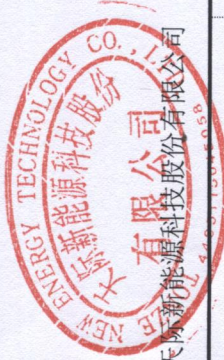 NEW ENERGY TECHNOLOGY CO., L
天际新能源科技股份
有限公司
天际新能源科技股份有限公司